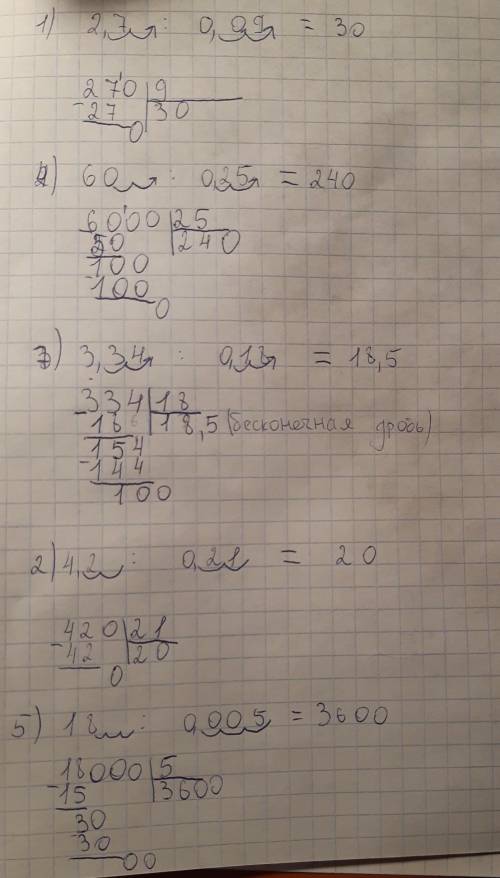 1) 2,7 : 0,09 = 30
270 | 9
-27 | 30
0
4) 60 : 0,25 = 240
6000 | 25
50 | 240
100
-100
0
7) 3,34 : 0,18 = 18,5
-334 | 18
18 | 18,5 (бесконечная дробь)
154
-144
100
2) 4,2 : 0,21 = 20
420 | 21
-42 | 20
0
5) 18 : 0,005 = 3600
18000 | 5
-15 | 3600
30
-30
00